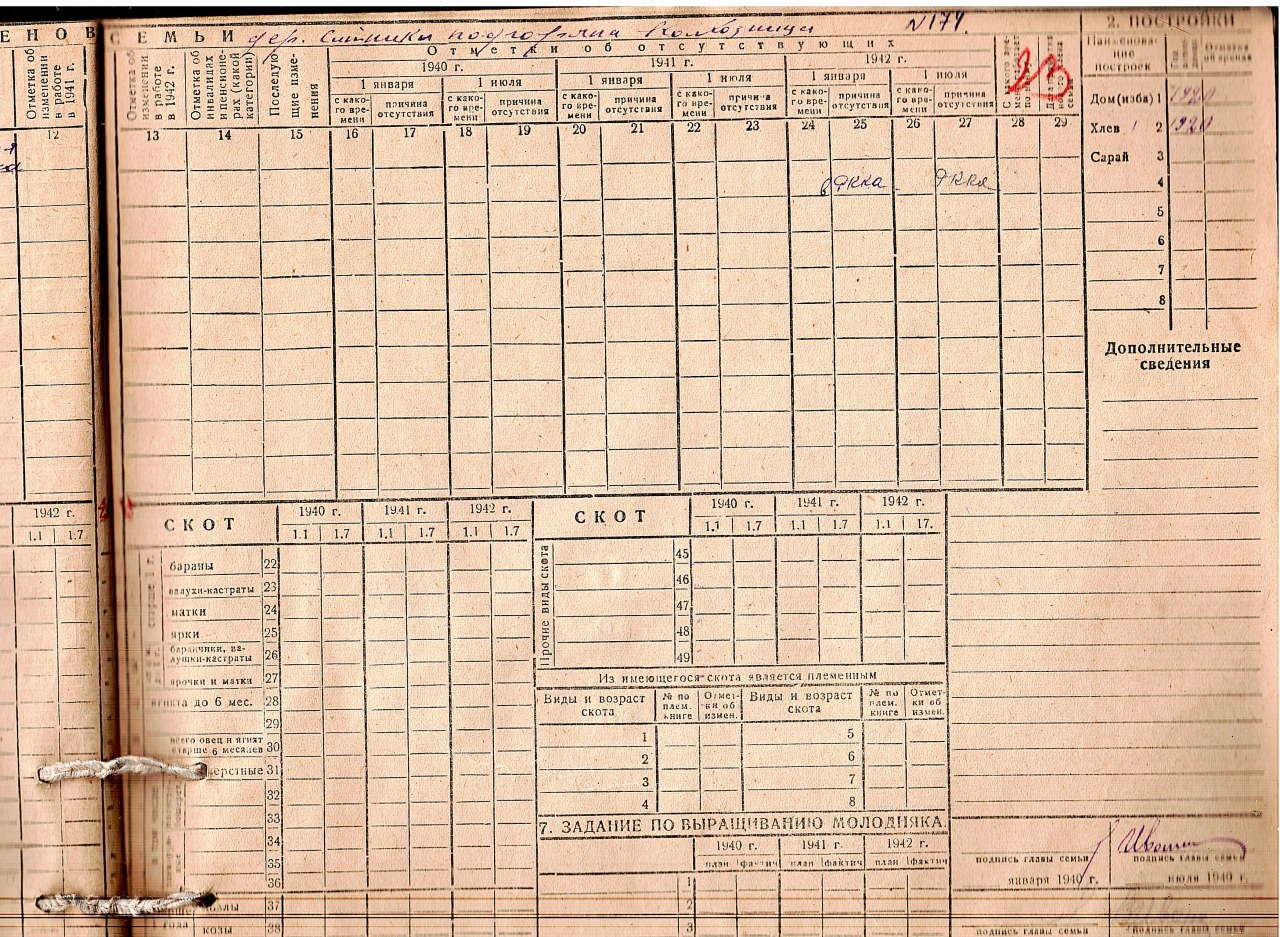 ЕНОВ СЕМЬИ дер. № 174.
Отметки об отсутствующих
2. ПОСТРОЙКИ
Отметка об изменении в работе в 1941 г.
Отметка об изменении в работе в 1942 г.
Отметка об инвалидах и пенсионерах (какой категории)
Последующие изменения
1940 г. 1941 г. 1942 г.
1 января 1 июля 1 января 1 июля 1 января 1 июля
с како-го вре-мени причина отсутствия с како-го вре-мени причина отсутствия с како-го вре-мени причина отсутствия с како-го вре-мени причина отсутствия с како-го вре-мени причина отсутствия с како-го вре-мени причина отсутствия
Наименова-ние построек
12 13 14 15 16 17 18 19 20 21 22 23 24 25 26 27 28 29
Дом(изба) 1 1920
Хлев 1 2 1920
Сарай 3
в РККА РККА 4
5
6
7
8
Дополнительные
сведения
1942 г.
1.1 1.7
СКОТ 1940 г. 1941 г. 1942 г.
1.1 1.7 1.1 1.7 1.1 1.7
бараны 22
валухи-кастраты 23
матки 24
ярки 25
баранчики, ва-
лушки-кастраты 26
ярочки и матки 27
до 6 мес. 28
29
всего овец и ягнят
старше 6 месяцев 30
шерстные 31
32
33
34
35
36
козлы 37
года козы 38
СКОТ 1940 г. 1941 г. 1942 г.
1.1 1.7 1.1 1.7 1.1 17.
Прочие виды скота
45
46
47
48
49
Из имеющегося скота является племенным
Виды и возраст скота № по плем. книге Отмет-ки об измен. Виды и возраст скота № по плем. книге Отмет-ки об измен.
1 5
2 6
3 7
4 8
7. ЗАДАНИЕ ПО ВЫРАЩИВАНИЮ МОЛОДНЯКА.
1940 г. 1941 г. 1942 г.
план фактич план фактич план фактич
1
2
3
подпись главы семьи подпись главы семьи
января 1940 г. июля 1940 г.
подпись главы семьи подпись главы семьи